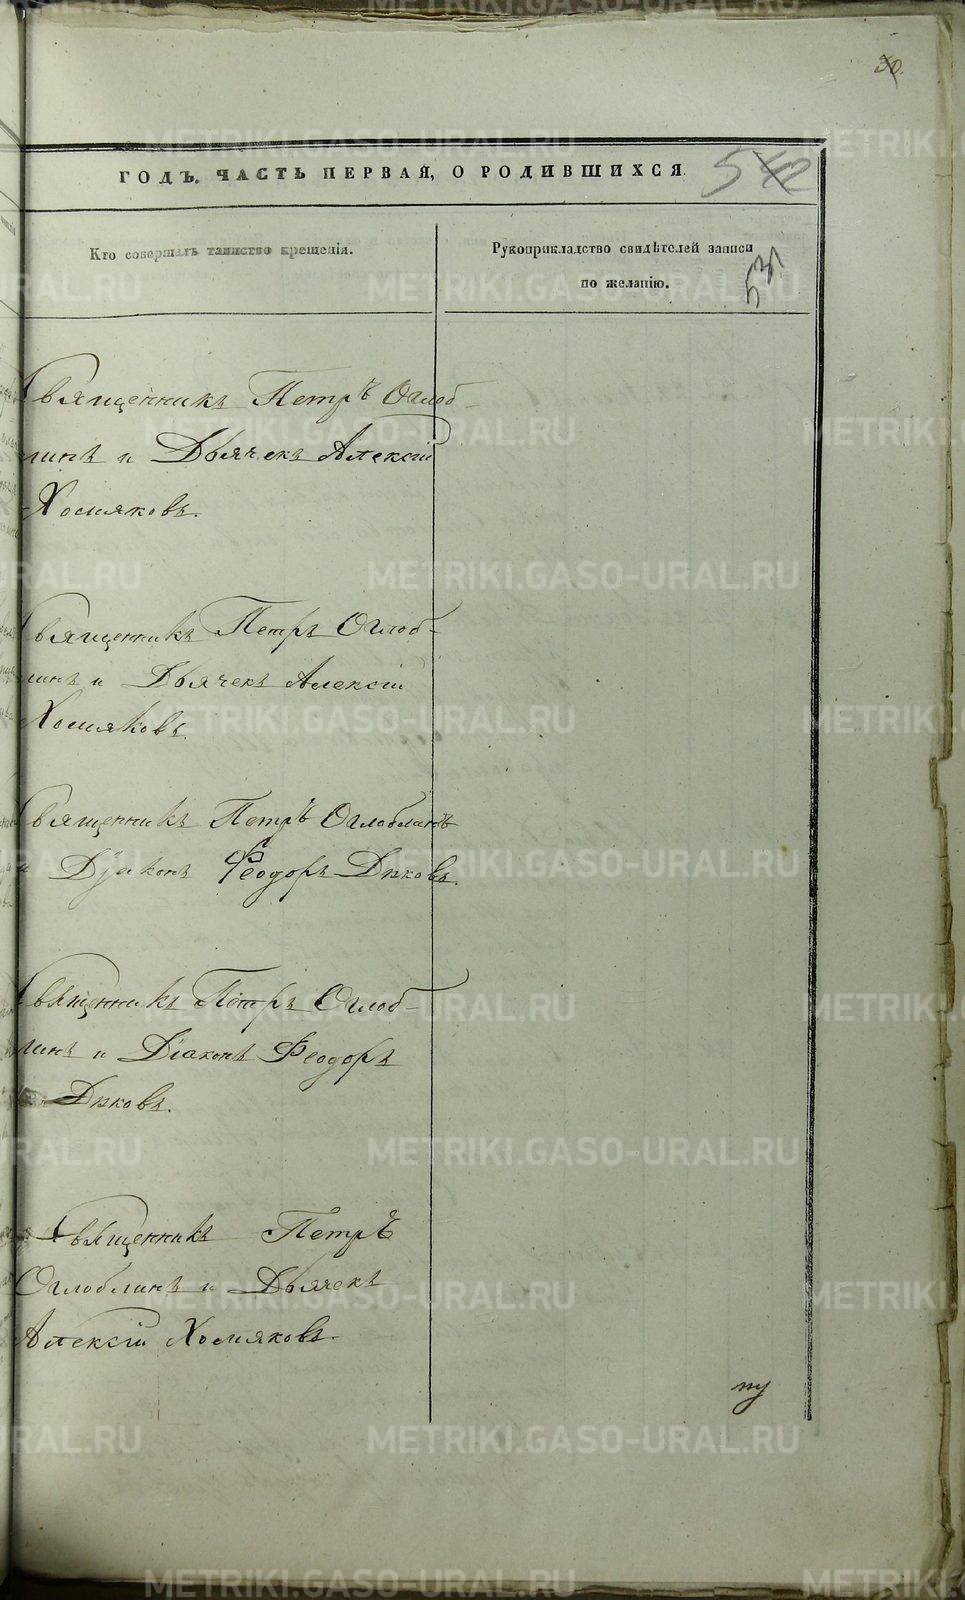 30.
ГОДЪ. ЧАСТЬ ПЕРВАЯ, О РОДИВШИХСЯ.
542
Кто совершалъ таинство крещенія.
Рукоприкладство свидѣтелей записи
по желанію.
531
Священникъ Петръ Оглоб-
линъ и Дьячекъ Алексій
Хомяковъ.
Священникъ Петръ Оглоб-
линъ и Дьячекъ Алексій
Хомяковъ.
Священникъ Петръ Оглоблинъ
и Діаконъ Ѳеодоръ Дьковъ.
Священникъ Петръ Оглоб-
линъ и Діаконъ Ѳеодоръ
Дьковъ.
Священникъ Петръ
Оглоблинъ и Дьячекъ
Алексій Хомяковъ.
METRIKI.GASO-URAL.RU